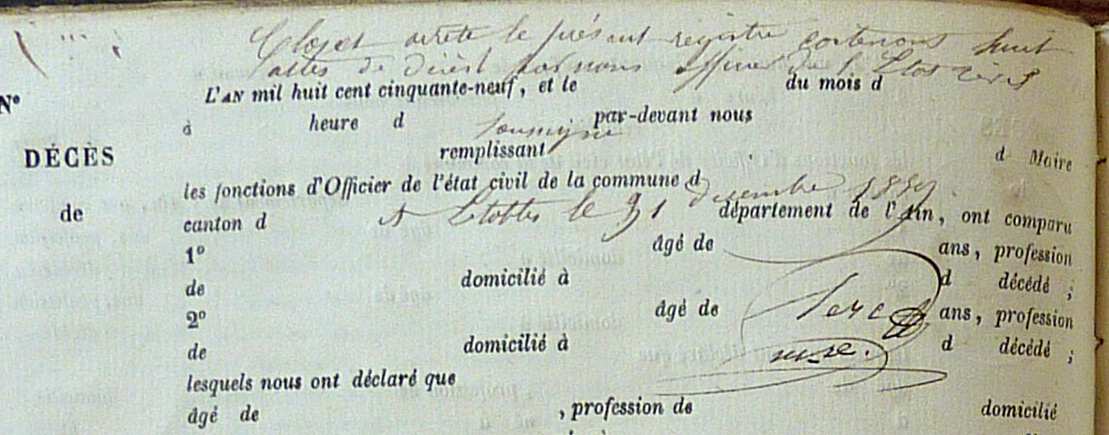 Clos et arrêté le présent registre contenons huit
actes de décès par nous officier de l'
L'AN mil huit cent cinquante-neuf, et le du mois d
N°
à heure d par-devant nous
soussigné
DÉCÈS
remplissant d Maire
les fonctions d'Officier de l'état civil de la commune d
de
A le 31 décembre 1859.
canton d département de l'Ain, ont comparu
1° âgé de ans, profession
de domicilié à d décédé ;
2° âgé de ans, profession
de domicilié à d décédé ;
maire.
lesquels nous ont déclaré que
âgé de , profession de domicilié